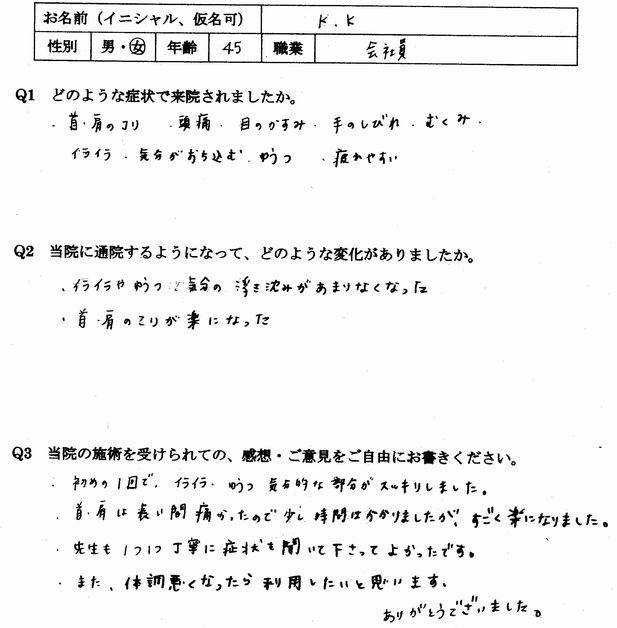 お名前(イニシャル、仮名可) K.K
性別 男・女 年齢 45 職業 会社員
Q1 どのような症状で来院されましたか。
・首・肩のコリ ・頭痛・目のかすみ・手のしびれ・むくみ・
イライラ・気分がおち込む・ゆうつ ・疲れやすい
Q2 当院に通院するようになって、どのような変化がありましたか。
・イライラやゆうつで気分の浮き沈みがあまりなくなった
・首・肩のこりが楽になった
Q3 当院の施術を受けられての、感想・ご意見をご自由にお書きください。
・初めの1回で、イライラ・ゆうつ 気分的な部分がスッキリしました。
・首・肩は長い間痛かったので少し時間はかかりましたが、すごく楽になりました。
・先生も1つ1つ丁寧に症状を聞いて下さってよかったです。
・また、体調悪くなったら利用したいと思います。
ありがとうございました。